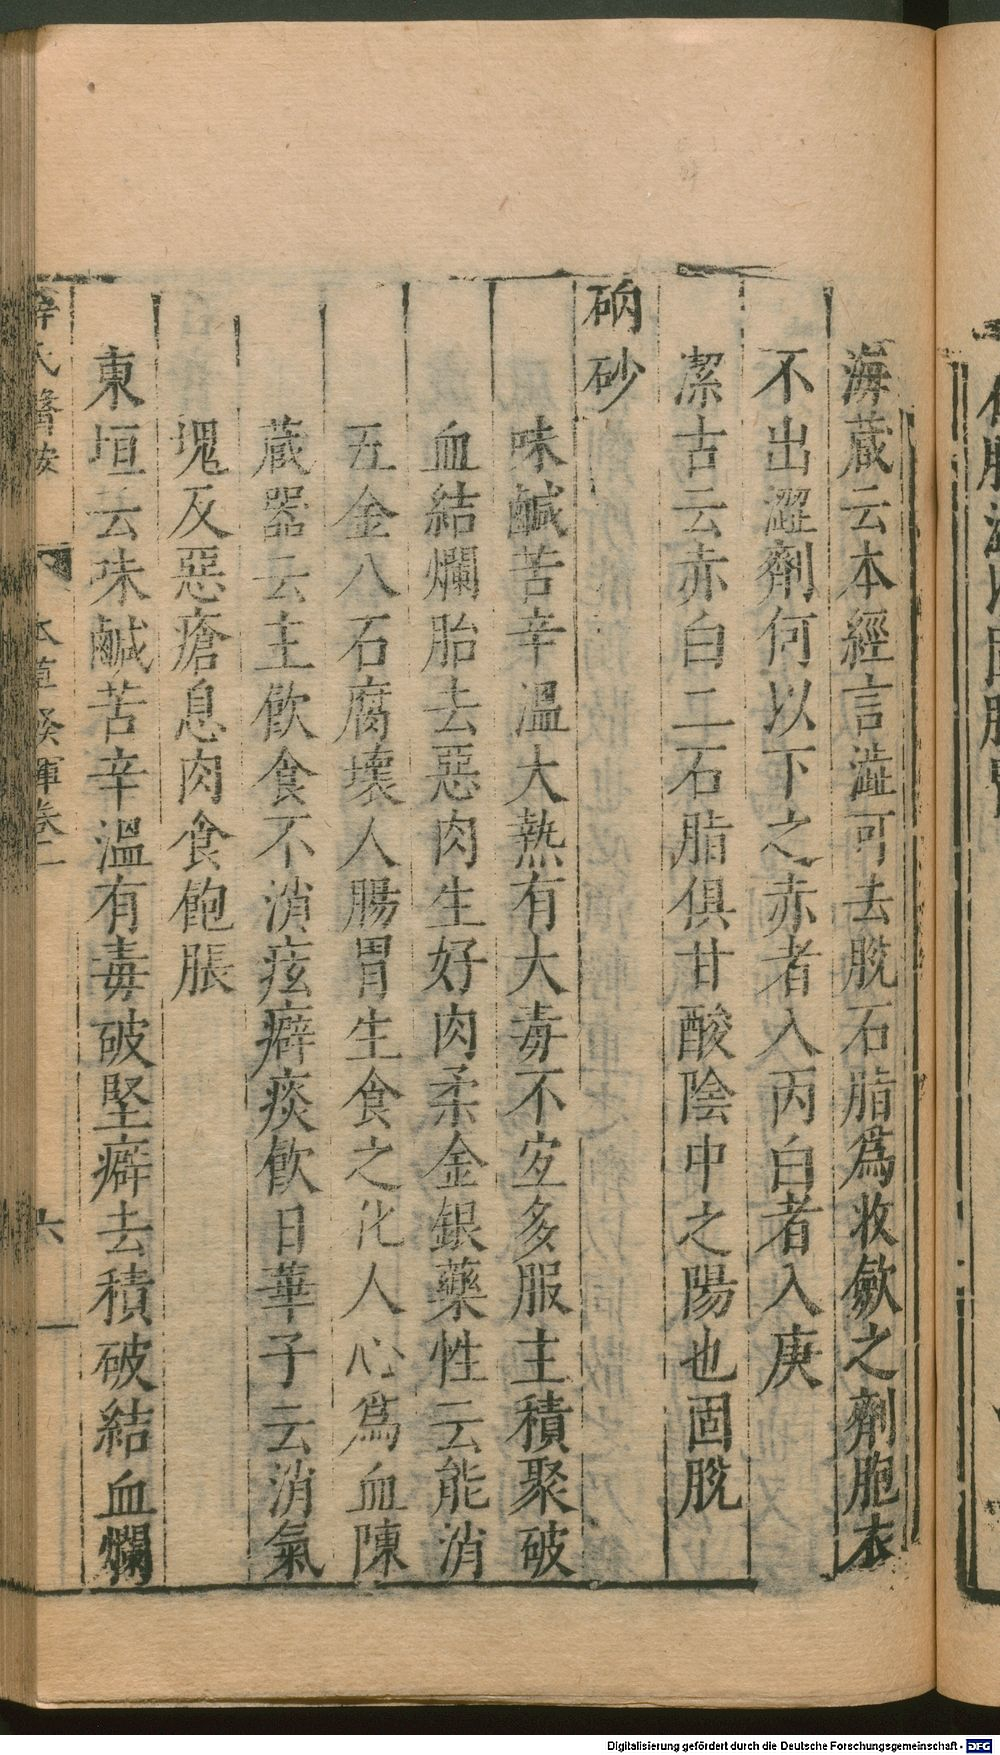 海蔵云本經言澁可去脫石脂爲收斂之劑胞衣
不出澀劑何以下之赤者入丙白者入庚
潔古云赤白二石脂俱甘酸陰中之陽也固脫
硇砂
味鹹苦辛溫大熱有大毒不宜多服主積聚破
血結爛胎去惡肉生好肉柔金銀藥性云能消
五金八石腐壞人腸胃生食之化人心爲血陳
蔵器云主飲食不消痃癖痰飲日華子云消氣
塊及惡瘡息肉食飽脹
東垣云味鹹苦辛溫有毒破堅癖去積破結血爛
薛氏醫按 本草發揮卷二 六
Digitalisierung gefördert durch die Deutsche Forschungsgemeinschaft - DFG